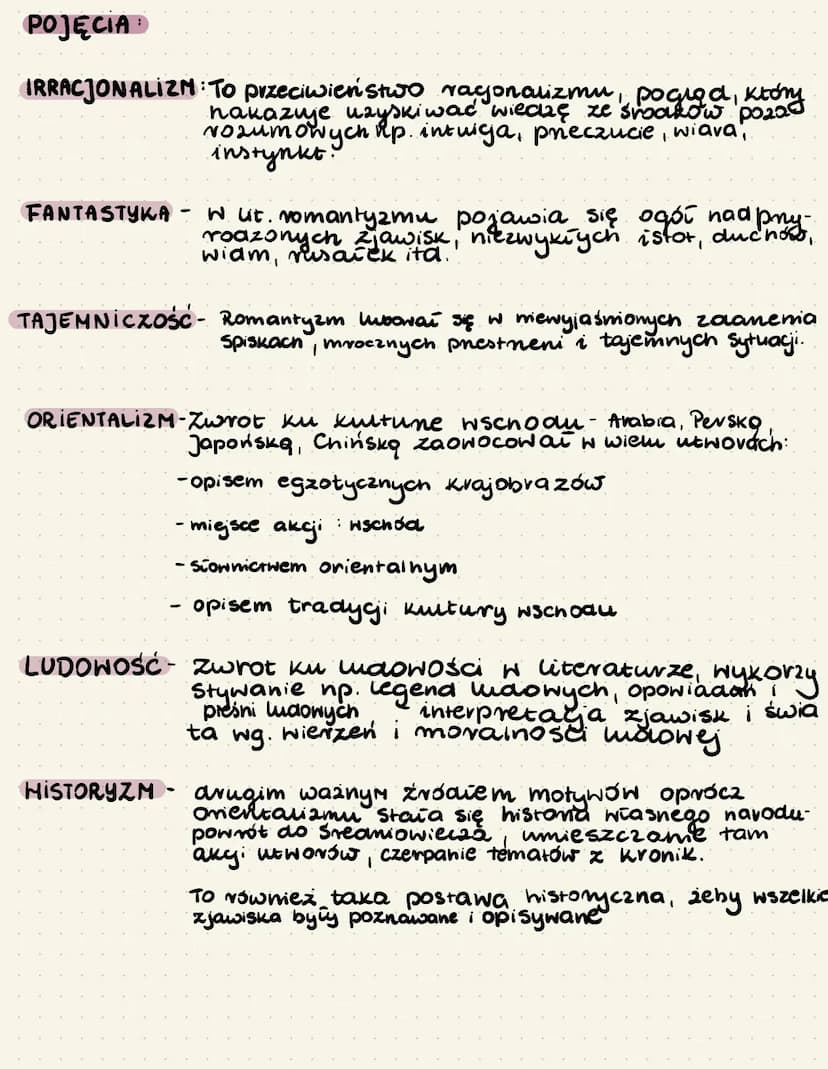 POJĘCIA:
IRRACJONALIZM: To przeciwieństwo racjonalizmu, pogląd, który
nakazuje uzyskiwać wiedzę ze środków poza
rozumowych np. intuicja, przeczucie, wiara,
instynkt.
FANTASTYKA - W lit. romantyzmu pojawia się ogół nadprzy-
rodzonych zjawisk, niezwykłych istot, duchów,
widm, rusałek itd.
TAJEMNICZOŚĆ - Romantyzm lubował się w niewyjaśnionych zdarzenia
spiskach, mrocznych przestrzeni i tajemnych sytuacji.
ORIENTALIZM - Zwrot ku kulturze wschodu - Arabia, Perską,
Japońską, Chińską zaowocował w wielu utworach:
- opisem egzotycznych krajobrazów
- miejsce akcji : wschód
- słownictwem orientalnym
- opisem tradycji kultury wschodu
LUDOWOŚĆ - Zwrot ku ludowości w literaturze, wykorzy
stywanie np. legend ludowych, opowiadań i
pieśni ludowych interpretacja zjawisk i świa
ta wg. wierzeń i moralności ludowej
HISTORYZM - drugim ważnym źródłem motywów oprócz
orientalizmu stała się historia własnego narodu-
powrót do średniowiecza, umieszczanie tam
akcji utworów, czerpanie tematów z kronik.
To również taka postawa historyczna, żeby wszelkie
zjawiska były poznawane i opisywane